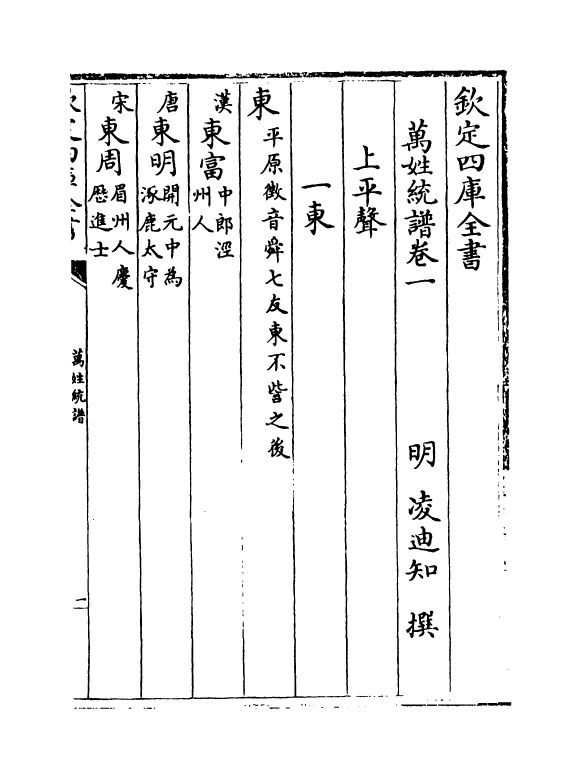 欽定四庫全書
萬姓統譜卷一
明 凌迪知 撰
上平聲
一東
東 平原徵音舜七友東不訾之後
漢
東富 中郎涇
州人
唐
東明 開元中為
涿鹿太守
宋
東周 眉州人慶
歴進士
萬姓統譜